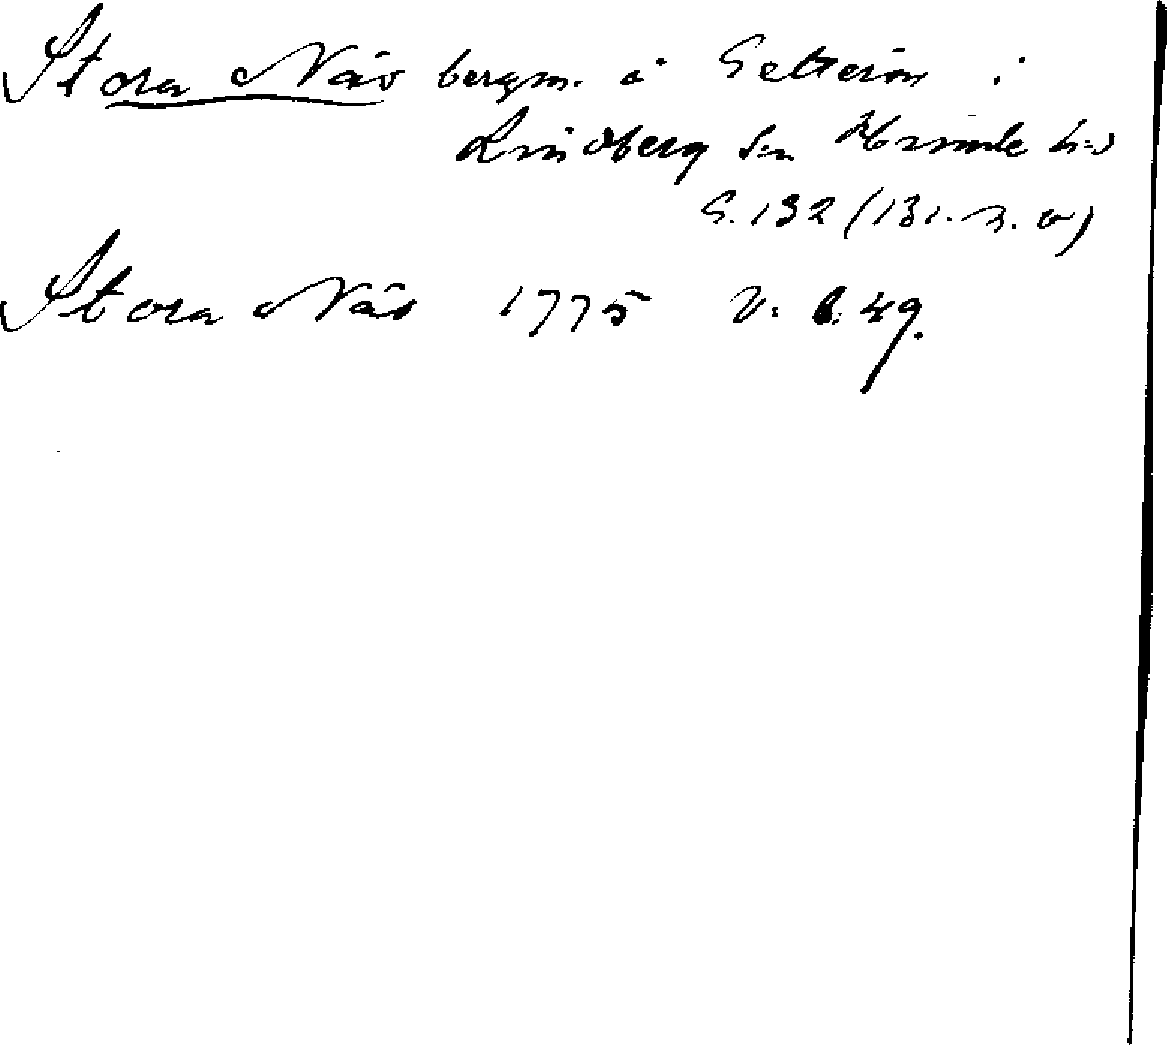 Stora Näs bergm. å Getterön i
Lindberg sn Himle hd
S. 132 (131. n. v)
Stora Näs 1775 V: 6: 49.